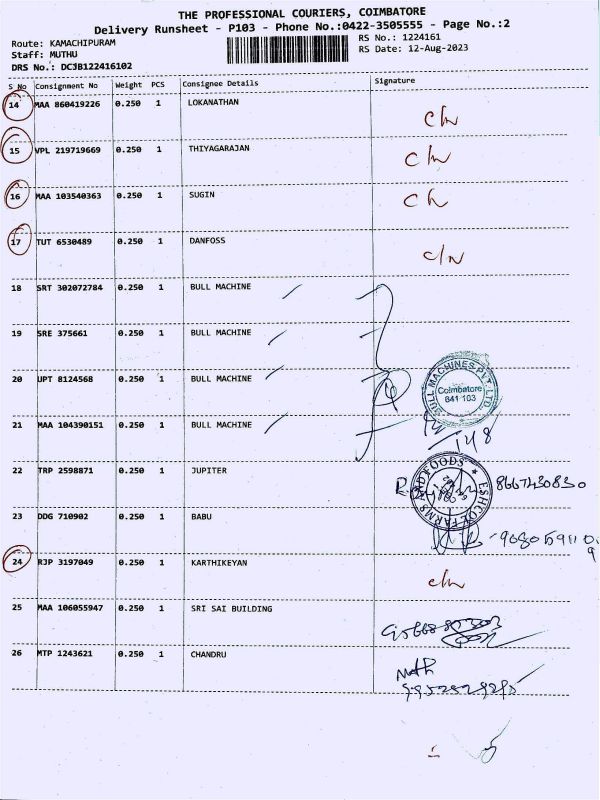 THE PROFESSIONAL COURIERS, COIMBATORE
Delivery Runsheet - P103 - Phone No.:0422-3505555 - Page No.:2
Route: KAMACHIPURAM RS No.: 1224161
Staff: MUTHU RS Date: 12-Aug-2023
DRS No.: DCJB122416102
S No Consignment No Weight PCS Consignee Details Signature
14 MAA 860419226 0.250 1 LOKANATHAN
15 VPL 219719669 0.250 1 THIYAGARAJAN
16 MAA 103540363 0.250 1 SUGIN
17 TUT 6530489 0.250 1 DANFOSS
18 SRT 302072784 0.250 1 BULL MACHINE
19 SRE 375661 0.250 1 BULL MACHINE
20 UPT 8124568 0.250 1 BULL MACHINE
BULL MACHINES PVT. LTD
Coimbatore
641 103
21 MAA 104390151 0.250 1 BULL MACHINE
22 TRP 2598871 0.250 1 JUPITER
ESHCOL FARMS AND FOODS
8667430830
23 DDG 710902 0.250 1 BABU
24 RJP 3197049 0.250 1 KARTHIKEYAN
25 MAA 106055947 0.250 1 SRI SAI BUILDING
26 MTP 1243621 0.250 1 CHANDRU